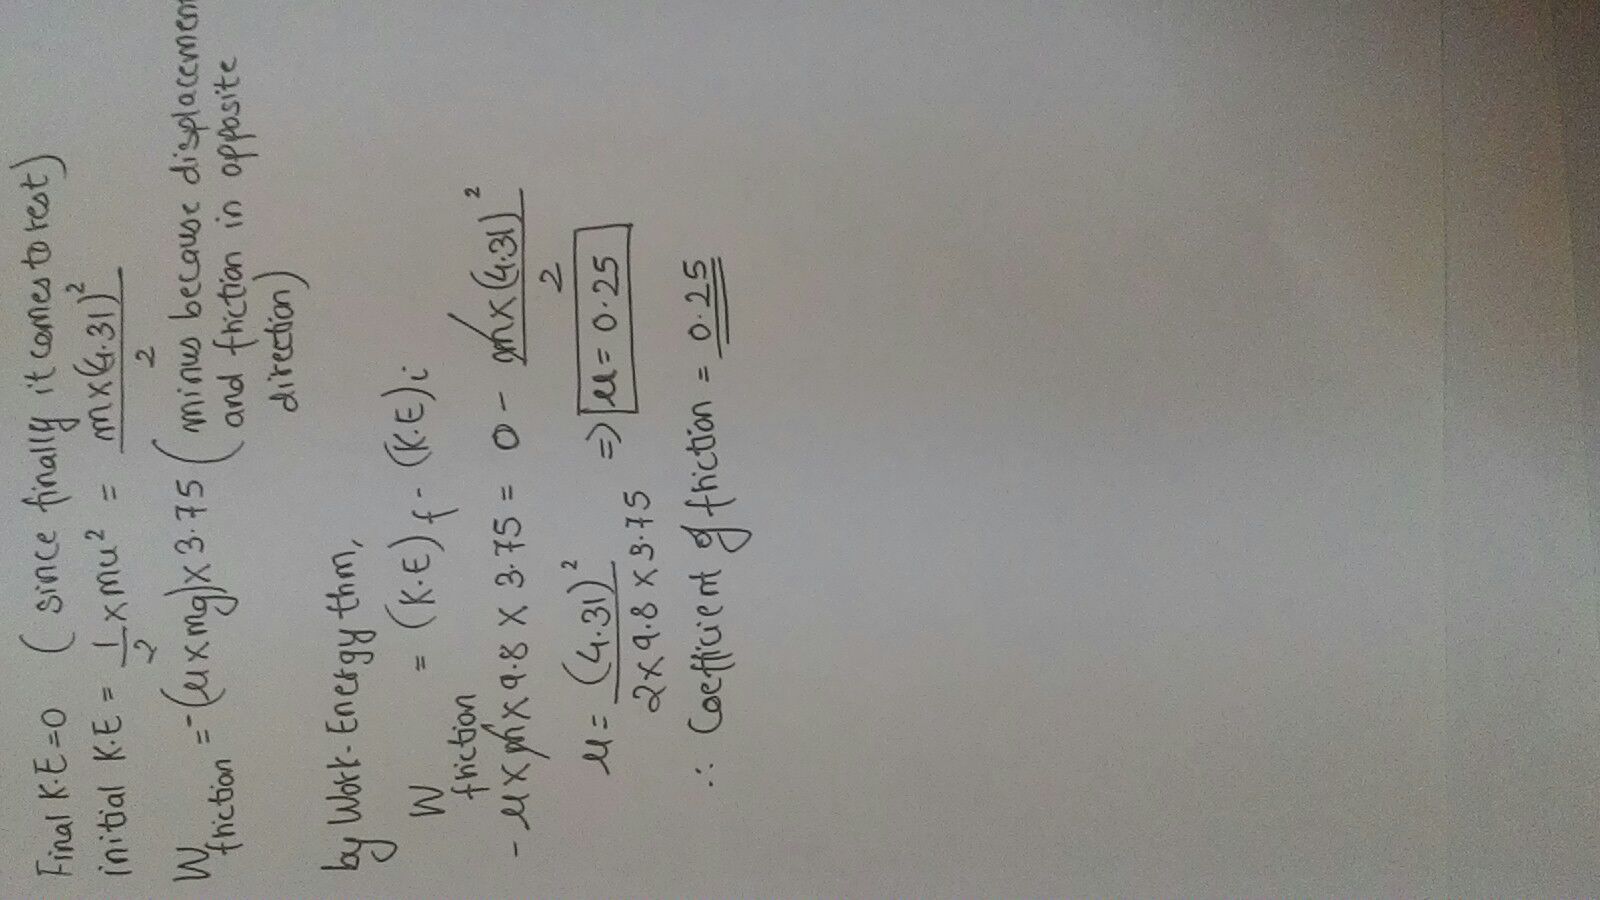 Final K.E=0 (since finally it comes to rest)
initial K.E = 1/2 x mu² = mx(4.31)²/2
W friction = -(μxmg)x3.75 (minus because displacemen
and friction in opposite
direction)
by Work-Energy thm,
W friction = (K.E)f - (K.E)i
-μxmx9.8x3.75 = 0 - mx(4.31)²/2
μ = (4.31)²/2x9.8x3.75 => μ=0.25
∴ Coefficient of friction = 0.25